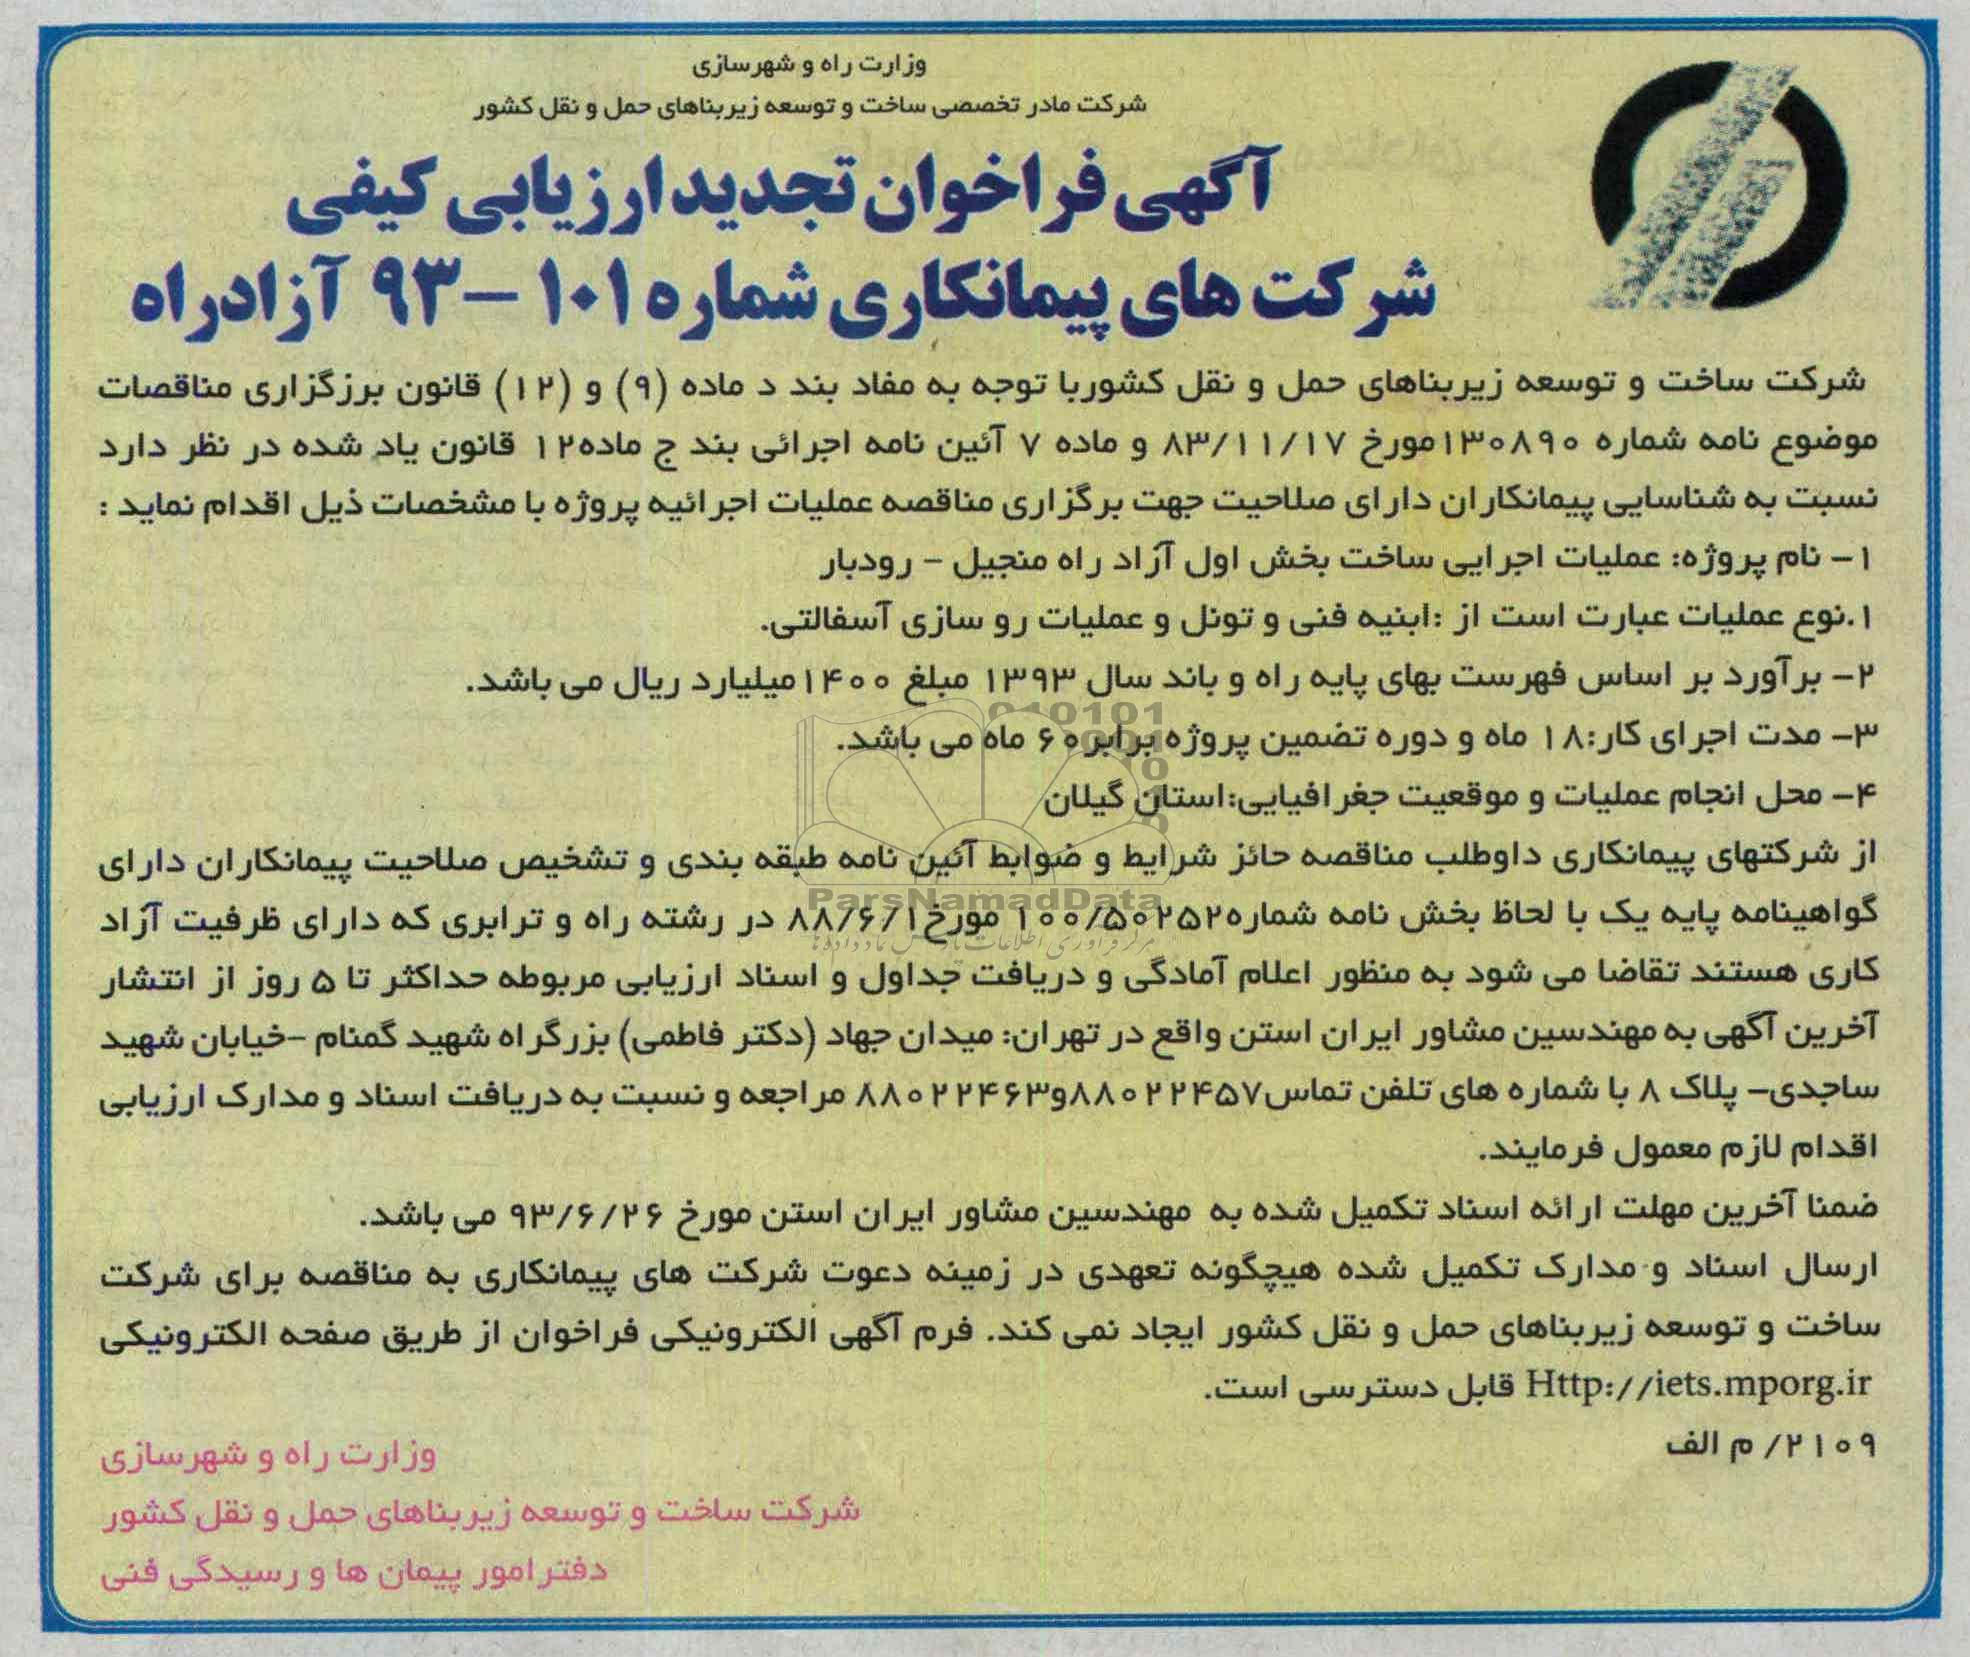 وزارت راه و شهرسازی
شرکت مادر تخصصی ساخت و توسعه زیربناهای حمل و نقل کشور
آگهی فراخوان تجدید ارزیابی کیفی
شرکت های پیمانکاری شماره ۱۰۱ – ۹۳ آزادراه
شرکت ساخت و توسعه زیربناهای حمل و نقل کشوربا توجه به مفاد بند د ماده (۹) و (۱۲) قانون برزگزاری مناقصات
موضوع نامه شماره ۱۳۰۸۹۰مورخ ۸۳/۱۱/۱۷ و ماده ۷ آئین نامه اجرائی بند ج ماده۱۲ قانون یاد شده در نظر دارد
نسبت به شناسایی پیمانکاران دارای صلاحیت جهت برگزاری مناقصه عملیات اجرائیه پروژه با مشخصات ذیل اقدام نماید :
۱– نام پروژه: عملیات اجرایی ساخت بخش اول آزاد راه منجیل – رودبار
۱.نوع عملیات عبارت است از :ابنیه فنی و تونل و عملیات رو سازی آسفالتی.
۲– برآورد بر اساس فهرست بهای پایه راه و باند سال ۱۳۹۳ مبلغ ۱۴۰۰میلیارد ریال می باشد.
۳– مدت اجرای کار:۱۸ ماه و دوره تضمین پروژه برابر۶۰ ماه می باشد.
۴– محل انجام عملیات و موقعیت جغرافیایی:استان گیلان
از شرکتهای پیمانکاری داوطلب مناقصه حائز شرایط و ضوابط آئین نامه طبقه بندی و تشخیص صلاحیت پیمانکاران دارای
گواهینامه پایه یک با لحاظ بخش نامه شماره۱۰۰/۵۰۲۵۲ مورخ۸۸/۶/۱ در رشته راه و ترابری که دارای ظرفیت آزاد
کاری هستند تقاضا می شود به منظور اعلام آمادگی و دریافت جداول و اسناد ارزیابی مربوطه حداکثر تا ۵ روز از انتشار
آخرین آگهی به مهندسین مشاور ایران استن واقع در تهران: میدان جهاد (دکتر فاطمی) بزرگراه شهید گمنام –خیابان شهید
ساجدی– پلاک ۸ با شماره های تلفن تماس۸۸۰۲۲۴۵۷و۸۸۰۲۲۴۶۳ مراجعه و نسبت به دریافت اسناد و مدارک ارزیابی
اقدام لازم معمول فرمایند.
ضمنا آخرین مهلت ارائه اسناد تکمیل شده به مهندسین مشاور ایران استن مورخ ۹۳/۶/۲۶ می باشد.
ارسال اسناد و مدارک تکمیل شده هیچگونه تعهدی در زمینه دعوت شرکت های پیمانکاری به مناقصه برای شرکت
ساخت و توسعه زیربناهای حمل و نقل کشور ایجاد نمی کند. فرم آگهی الکترونیکی فراخوان از طریق صفحه الکترونیکی
Http://iets.mporg.ir قابل دسترسی است.
۲۱۰۹/ م الف
وزارت راه و شهرسازی
شرکت ساخت و توسعه زیربناهای حمل و نقل کشور
دفتر امور پیمان ها و رسیدگی فنی
ParsNamadData